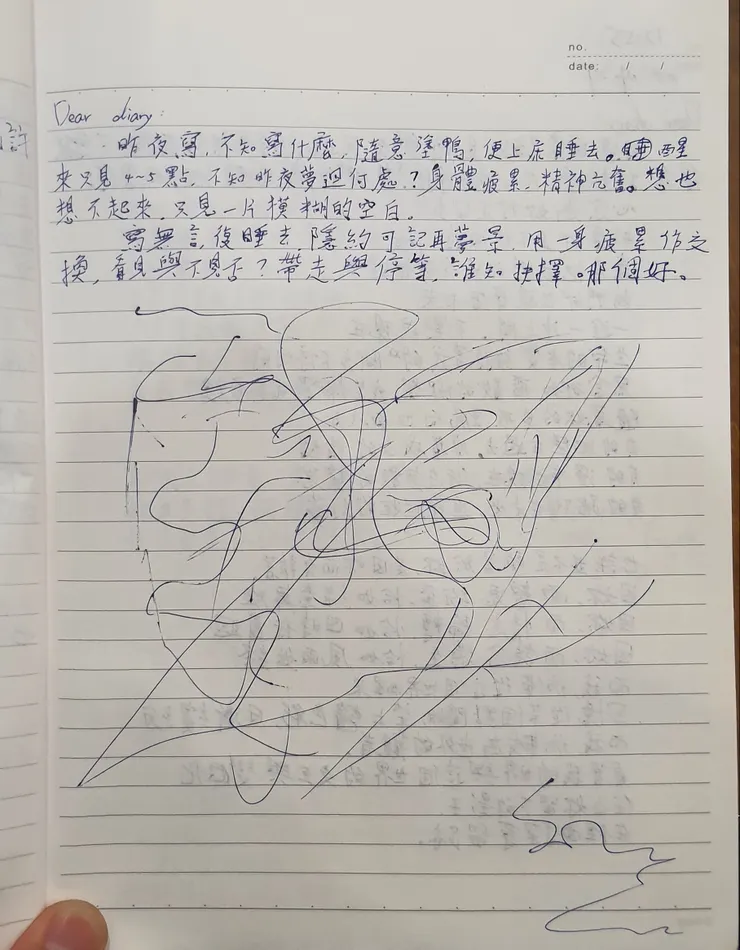 no.
date: / /
許
Dear diary:
昨夜寫，不知寫什麼，隨意塗鴨，便上床睡去。睡醒
來只見4~5點，不知昨夜夢迴何處？身體疲累，精神亢奮。想也
想不起來，只見一片模糊的空白。
寫無言，復睡去，隱約可記再夢景，用一身疲累作交
換，看見與不見否？帶走與停等，誰知抉擇。那個好。